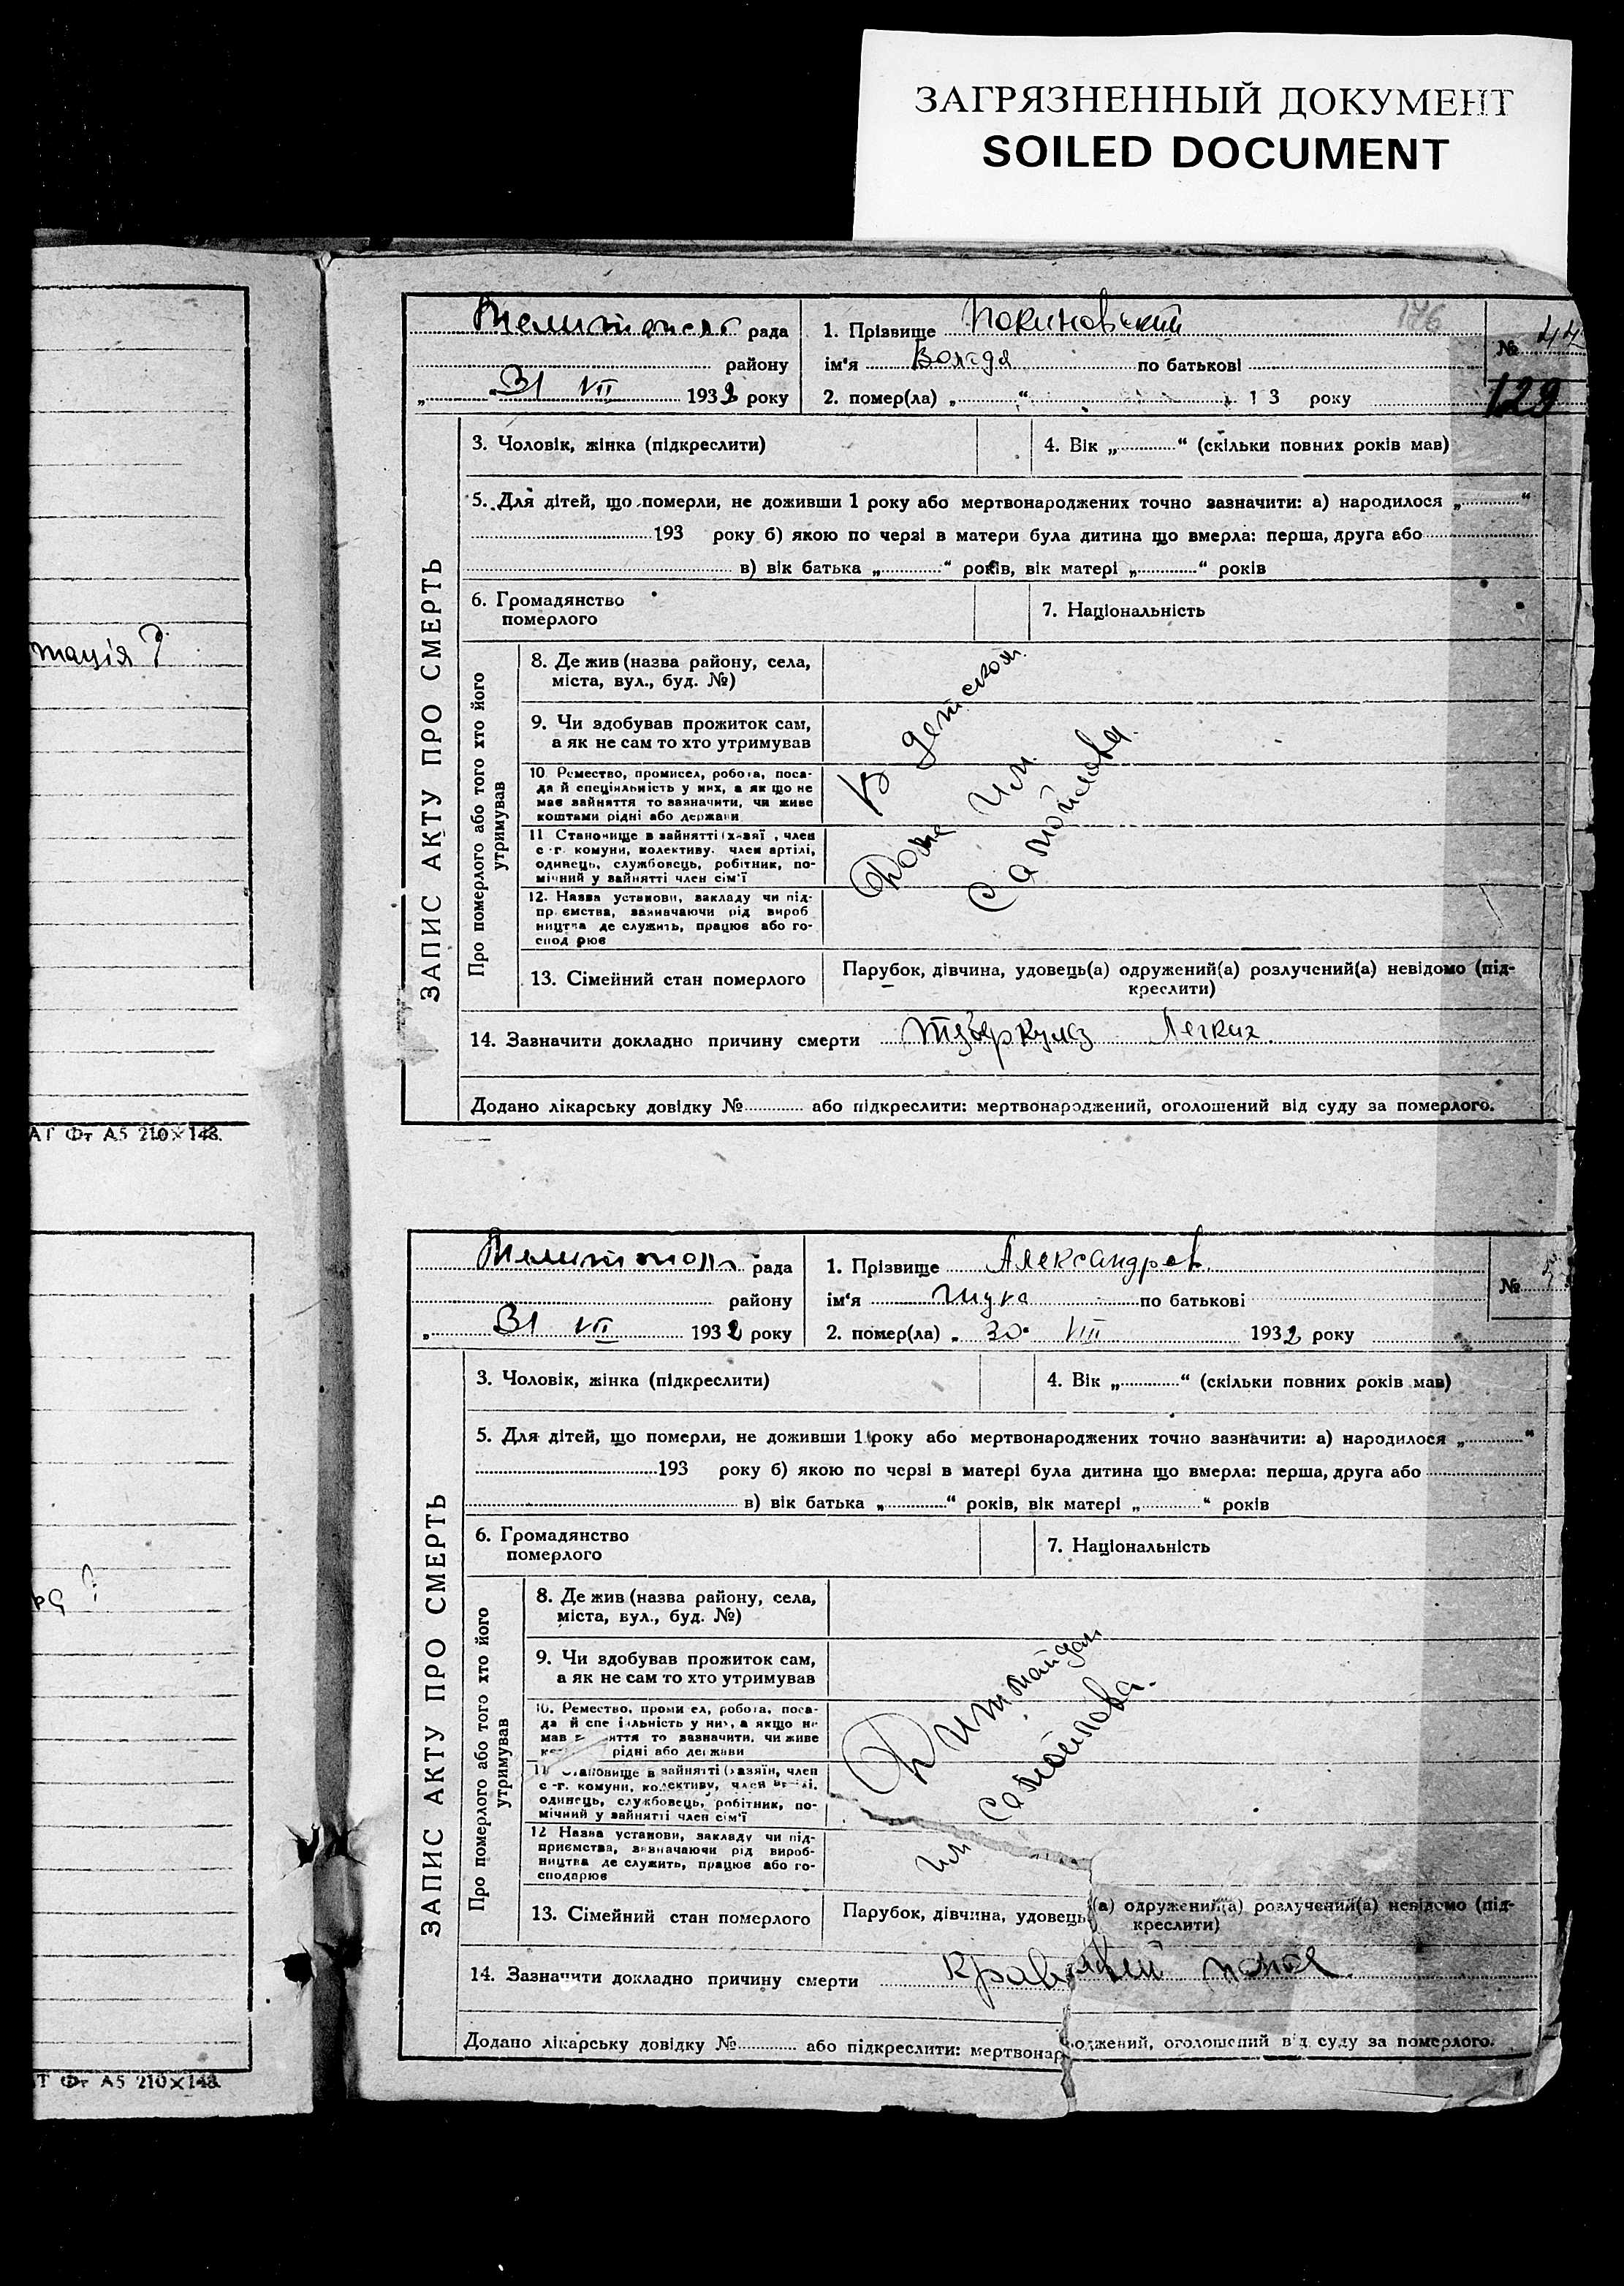 ЗАГРЯЗНЕННЫЙ ДОКУМЕНТ
SOILED DOCUMENT
тація?
АГ Фт А5 210×148.
Т Фт А5 210×148.
176
рада
1. Прізвище
№ 44
району
ім'я Володя по батькові
31 VII 1932 року
2. помер(ла) „ “ 1 3 року
129
ЗАПИС АКТУ ПРО СМЕРТЬ
3. Чоловік, жінка (підкреслити)
4. Вік „ “ (скільки повних років мав)
5. Для дітей, що померли, не доживши 1 року або мертвонароджених точно зазначити: а) народилося „ “
193 року б) якою по черзі в матери була дитина що вмерла: перша, друга або
в) вік батька „ “ років, вік матері „ “ років
6. Громадянство
померлого
7. Національність
Про померлого або того хто його
утримував
8. Де жив (назва району, села,
міста, вул., буд. №)
9. Чи здобував прожиток сам,
а як не сам то хто утримував
10. Ремество, промисел, робота, поса-
да й спеціяльність у них, а як що не
має зайняття то зазначити, чи живе
коштами рідні або держави
11 Становище в зайнятті (хазяї , член
с -г. комуни, колективу. член артілі,
одинець, службовець, робітник, по-
мічний у зайнятті член сім'ї
12. Назва установи, закладу чи під-
пр ємства, зазначаючи рід вироб
ництва де служить, працює або го-
спод рює
В детском
Доме им.
Самойлова.
13. Сімейний стан померлого
Парубок, дівчина, удовець(а) одружений(а) розлучений(а) невідомо (під-
креслити)
14. Зазначити докладно причину смерти туберкулез Легких.
Додано лікарську довідку № або підкреслити: мертвонароджений, оголошений від суду за померлого.
рада
1. Прізвище Александров
№
району
ім'я Шура по батькові
„ 31 VII 1932 року
2. помер(ла) „ 30 VIII 1932 року
ЗАПИС АКТУ ПРО СМЕРТЬ
3. Чоловік, жінка (підкреслити)
4. Вік „ “ (скільки повних років мав)
5. Для дітей, що померли, не доживши 1 року або мертвонароджених точно зазначити: а) народилося „ “
193 року б) якою по черзі в матері була дитина що вмерла: перша, друга або
в) вік батька „ “ років, вік матері „ “ років
6. Громадянство
померлого
7. Національність
Про померлого або того хто його
утримував
8. Де жив (назва району, села,
міста, вул., буд. №)
9. Чи здобував прожиток сам,
а як не сам то хто утримував
10. Ремество, проми ел, робота, поса-
да й спе і льність у них, а якщо не
мав з иття то зазначити, чи живе
рідні або держави
11 Становище в зайнятті (хазяїн, член
с -г. комуни, колективу, член
одинець, службовець, робітник, по-
мічний у зайнятті член сім'ї
12 Назва установи, закладу чи під-
приємства, зазначаючи рід вироб-
ництва де служить, працює або го-
сподарює
им Самойлова.
13. Сімейний стан померлого
Парубок, дівчина, удовець(а) одружений(а) розлучений(а) невідомо (під-
креслити)
14. Зазначити докладно причину смерти понос
Додано лікарську довідку № або підкреслити: мертвонароджений, оголошений від суду за померлого.